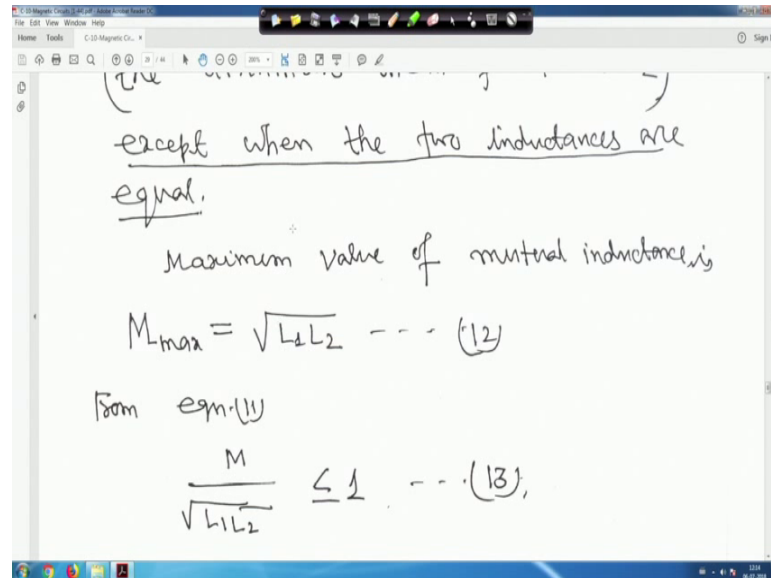 C-10-Magnetic Circuits (1-44).pdf - Adobe Acrobat Reader DC
File Edit View Window Help
Home Tools C-10-Magnetic Cir... × Sign
/ 44 200%
(the
except when the two inductances are
equal.
Maximum value of mutual inductance, is
M_max = √L1L2 ---- (12)
From eqn.(11)
M / √L1L2 ≤ 1 ---- (13),
12:14